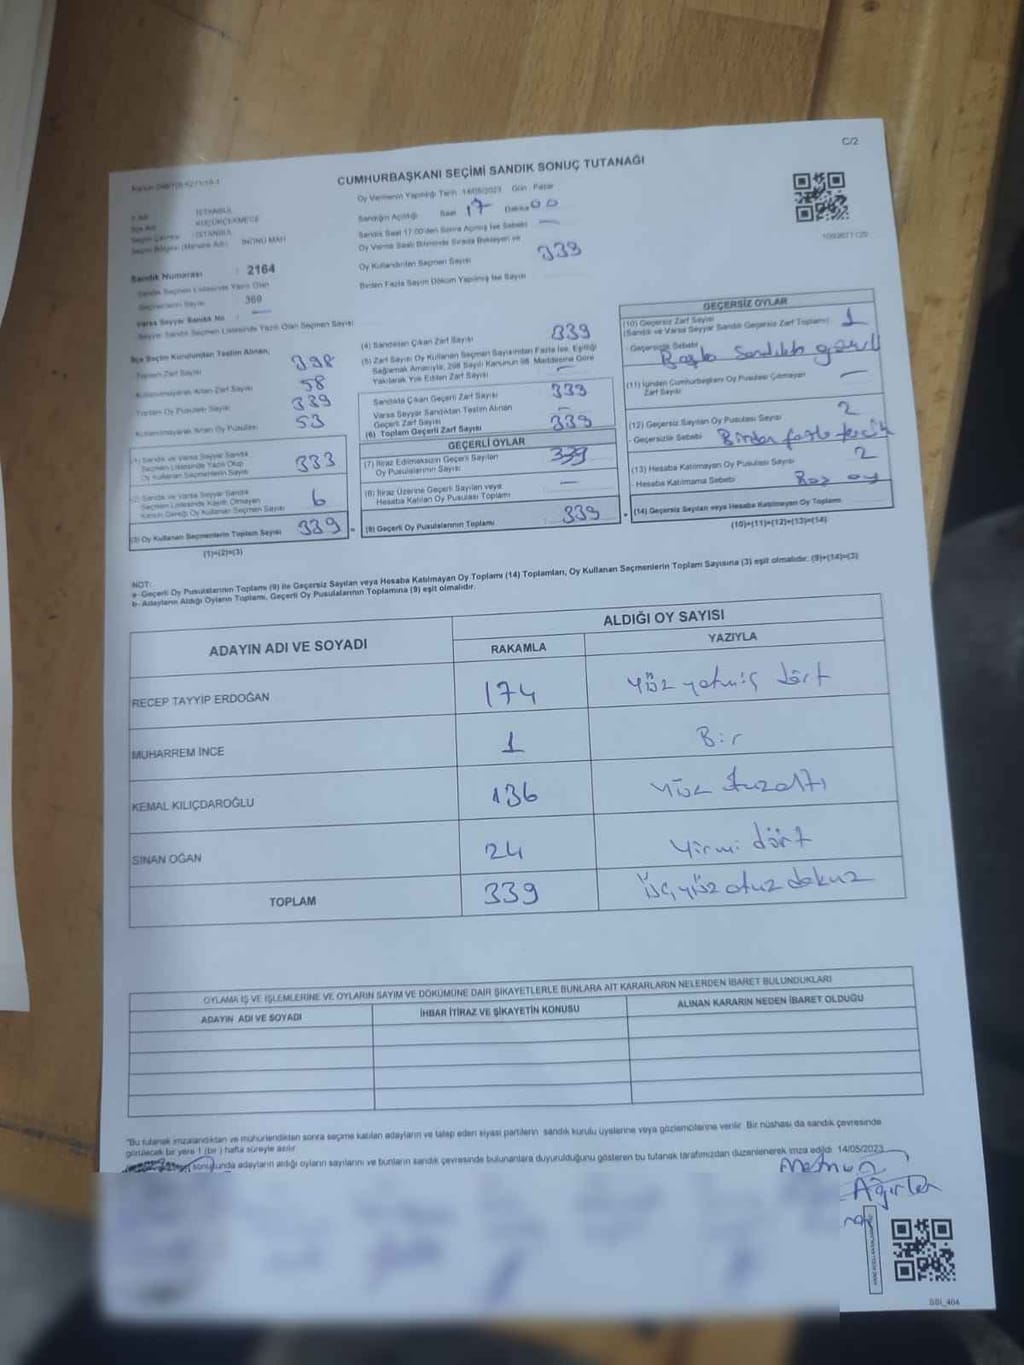 C/2
CUMHURBAŞKANI SEÇİMİ SANDIK SONUÇ TUTANAĞI
Oy Vermenin Yapıldığı Tarih 14/05/2023 Gün Pazar
Sandığın Açıldığı Saat 17 Dakika 00
Sandık Saat 17:00'den Sonra Açılmış İse Sebebi —
Oy Verme Saati Bitiminde Sırada Bekleyen ve
Oy Kullandırılan Seçmen Sayısı 339
Birden Fazla Sayım Döküm Yapılmış İse Sayısı
İSTANBUL
KÜÇÜKÇEKMECE
İSTANBUL
İNÖNÜ MAH
Sandık Numarası : 2164
Sandık Seçmen Listesinde Yazılı Olan
Seçmenlerin Sayısı 369
Varsa Seyyar Sandık No : —
Seyyar Sandık Seçmen Listesinde Yazılı Olan Seçmen Sayısı
İlçe Seçim Kurulundan Teslim Alınan,
Toplam Zarf Sayısı 398
Kullanılmayarak Artan Zarf Sayısı 58
Toplam Oy Pusulası Sayısı 339
Kullanılmayarak Artan Oy Pusulası 53
(1) Sandık ve Varsa Seyyar Sandık
Seçmen Listesinde Yazılı Olup
Oy Kullanan Seçmenlerin Sayısı 333
(2) Sandık ve Varsa Seyyar Sandık
Seçmen Listesinde Kayıtlı Olmayan
Kanun Gereği Oy Kullanan Seçmen Sayısı 6
(3) Oy Kullanan Seçmenlerin Toplam Sayısı 339
(1)+(2)=(3)
(4) Sandıktan Çıkan Zarf Sayısı 339
(5) Zarf Sayısı Oy Kullanan Seçmen Sayısından Fazla İse, Eşitliği
Sağlamak Amacıyla, 298 Sayılı Kanunun 98. Maddesine Göre
Yakılarak Yok Edilen Zarf Sayısı —
Sandıkta Çıkan Geçerli Zarf Sayısı 339
Varsa Seyyar Sandıktan Teslim Alınan
Geçerli Zarf Sayısı —
(6) Toplam Geçerli Zarf Sayısı 339
GEÇERLİ OYLAR
(7) İtiraz Edilmeksizin Geçerli Sayılan
Oy Pusulalarının Sayısı 339
(8) İtiraz Üzerine Geçerli Sayılan veya
Hesaba Katılan Oy Pusulası Toplamı —
(9) Geçerli Oy Pusulalarının Toplamı 339
GEÇERSİZ OYLAR
(10) Geçersiz Zarf Sayısı
(Sandık ve Varsa Seyyar Sandık Geçersiz Zarf Toplamı) 1
- Geçersizlik Sebebi
Başka Sandıkta
(11) İçinden Cumhurbaşkanı Oy Pusulası Çıkmayan
Zarf Sayısı —
(12) Geçersiz Sayılan Oy Pusulası Sayısı 2
- Geçersizlik Sebebi Birden fazla tercih
(13) Hesaba Katılmayan Oy Pusulası Sayısı 2
- Hesaba Katılmama Sebebi Boş oy
(14) Geçersiz Sayılan veya Hesaba Katılmayan Oy Toplamı
(10)+(11)+(12)+(13)=(14)
NOT:
a- Geçerli Oy Pusulalarının Toplamı (9) ile Geçersiz Sayılan veya Hesaba Katılmayan Oy Toplamı (14) Toplamları, Oy Kullanan Seçmenlerin Toplam Sayısına (3) eşit olmalıdır. (9)+(14)=(3)
b- Adayların Aldığı Oyların Toplamı, Geçerli Oy Pusulalarının Toplamına (9) eşit olmalıdır.
ADAYIN ADI VE SOYADI
ALDIĞI OY SAYISI
RAKAMLA YAZIYLA
RECEP TAYYİP ERDOĞAN 174 Yüz yetmiş dört
MUHARREM İNCE 1 Bir
KEMAL KILIÇDAROĞLU 136 Yüz tuzaltı
SİNAN OĞAN 24 Yirmi dört
TOPLAM 339 üçyüz otuz dokuz
OYLAMA İŞ VE İŞLEMLERİNE VE OYLARIN SAYIM VE DÖKÜMÜNE DAİR ŞİKAYETLERLE BUNLARA AİT KARARLARIN NELERDEN İBARET BULUNDUKLARI
ADAYIN ADI VE SOYADI İHBAR İTİRAZ VE ŞİKAYETİN KONUSU ALINAN KARARIN NEDEN İBARET OLDUĞU
"Bu tutanak imzalandıktan ve mühürlendikten sonra seçime katılan adayların ve talep eden siyasi partilerin sandık kurulu üyelerine veya gözlemcilerine verilir. Bir nüshası da sandık çevresinde
görülecek bir yere 1 (bir) hafta süreyle asılır.
sonucunda adayların aldığı oyların sayılarını ve bunların sandık çevresinde bulunanlara duyurulduğunu gösteren bu tutanak tarafımızdan düzenlenerek imza edildi. 14/05/2023
SSİ_404